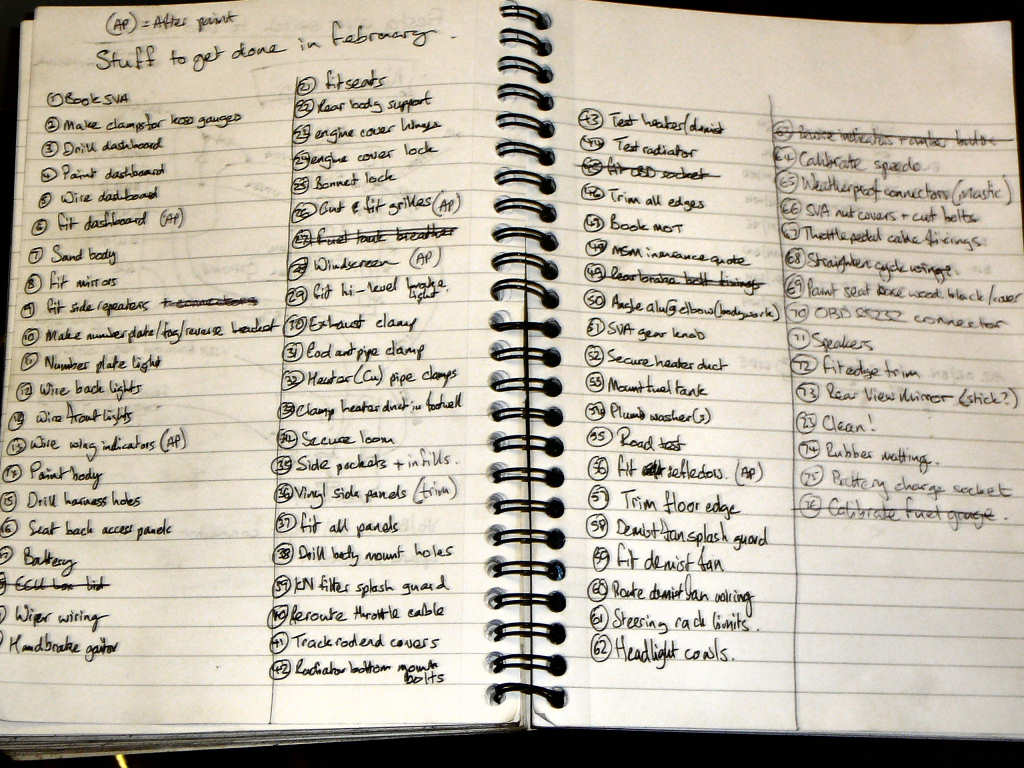 (AP) = After paint
Stuff to get done in February.
① Book SVA
② Make clamps for koso gauges
③ Drill dashboard
④ Paint dashboard
⑤ Wire dashboard
⑥ fit dashboard (AP)
⑦ Sand body
⑧ fit mirrors
⑨ fit side repeaters + connectors
⑩ Make number plate/fog/reverse bracket
⑪ Number plate light
⑫ Wire back lights
Wire front lights
⑬ Wire wing indicators (AP)
⑭ Paint body
⑮ Drill harness holes
⑯ Seat back access panels
Battery
ECU box lid
Wiper wiring
Handbrake gaitor
㉑ fit seats
㉒ Rear body support
㉓ engine cover hinges
㉔ engine cover lock
㉕ Bonnet lock
㉖ Cut & fit grilles (AP)
㉗ Fuel tank breather
㉘ Windscreen (AP)
㉙ fit hi-level brake light
㉚ Exhaust clamp
㉛ Coolant pipe clamp
㉜ Heater (Cu) pipe clamps
㉝ Clamp heater duct in footwell
㉞ Secure loom
㉟ Side pockets + infills.
㊱ Vinyl side panels (trim)
㊲ fit all panels
㊳ Drill body mount holes
㊴ KN filter splash guard
㊵ Reroute throttle cable
㊶ Track rod end covers
㊷ Radiator bottom mount bolts
㊸ Test heater/demist
㊹ Test radiator
㊺ fit OBD socket
㊻ Trim all edges
Book MOT
MSM insurance quote
㊾ Rear brake bolt fixings
㊿ Angle alu @ elbow (bodywork)
(51) SVA gear knob
(52) Secure heater duct
(53) Mount fuel tank
(54) Plumb washer(s)
(55) Road test
(56) fit reflectors. (AP)
(57) Trim floor edge
(58) Demist fan splash guard
(59) fit demist fan
(60) Route demist fan wiring
(61) Steering rack limits.
(62) Headlight cowls.
(63) indicators + number
(64) Calibrate speedo
(65) Weatherproof connectors (plastic)
(66) SVA nut covers + cut bolts
(67) Throttle pedal cable fixings
(68) Straighten cycle wings
(69) Paint seat base wood black/cover
(70) OBD RS232 connector
(71) Speakers
(72) fit edge trim
(73) Rear View Mirror (stick?)
(23) Clean!
(74) Rubber matting.
(75) Battery charge socket
(76) Calibrate fuel guage.